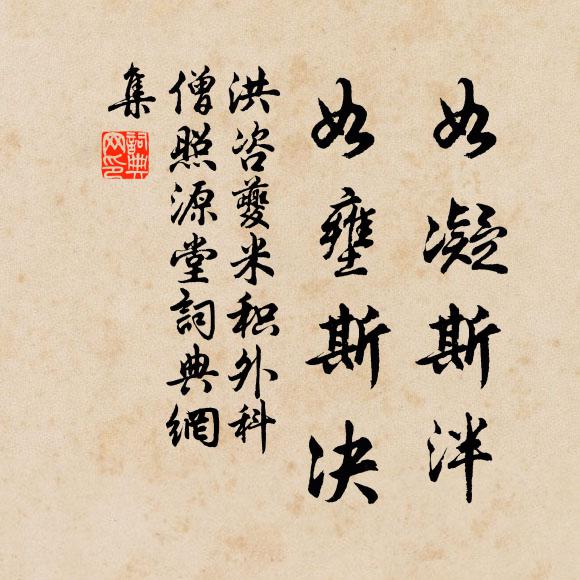 如凝斯泮
如壅斯决
洪咨夔米积外科
僧照源堂詞典網
集
詞典網印